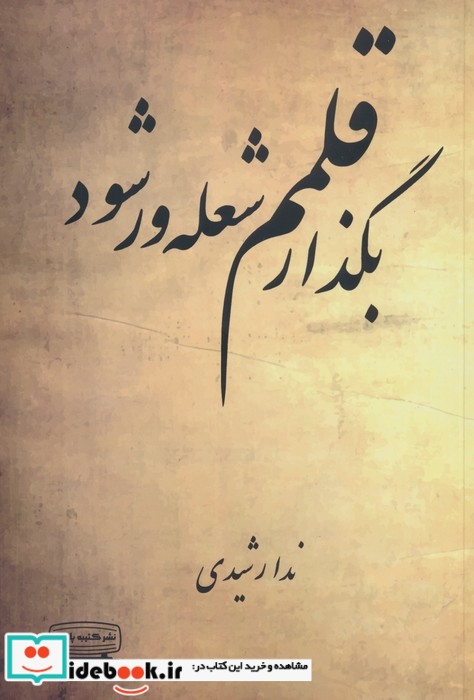 بگذار قلمم شعله ور شود
ندا رشیدی
نشر کتیبه
idebook.ir
مشاهده و خرید این کتاب در: